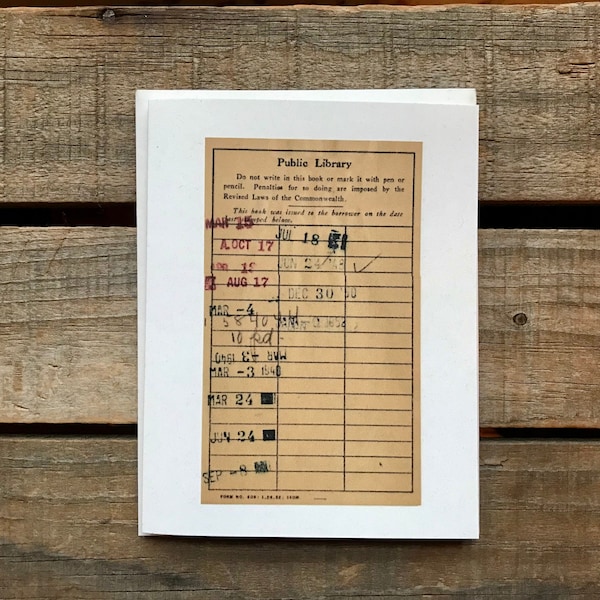 Public Library
Do not write in this book or mark it with pen or
pencil. Penalties for so doing are imposed by the
Revised Laws of the Commonwealth.
This book was issued to the borrower on the date
below.
MAR 15
OCT 17
12
AUG 17
MAR -4
10 pd.
MAR -3 1940
MAR -3 1940
MAR 24
JUN 24
SEP -8
JUL 18
JUN 24
DEC 30
FORM NO. 609: